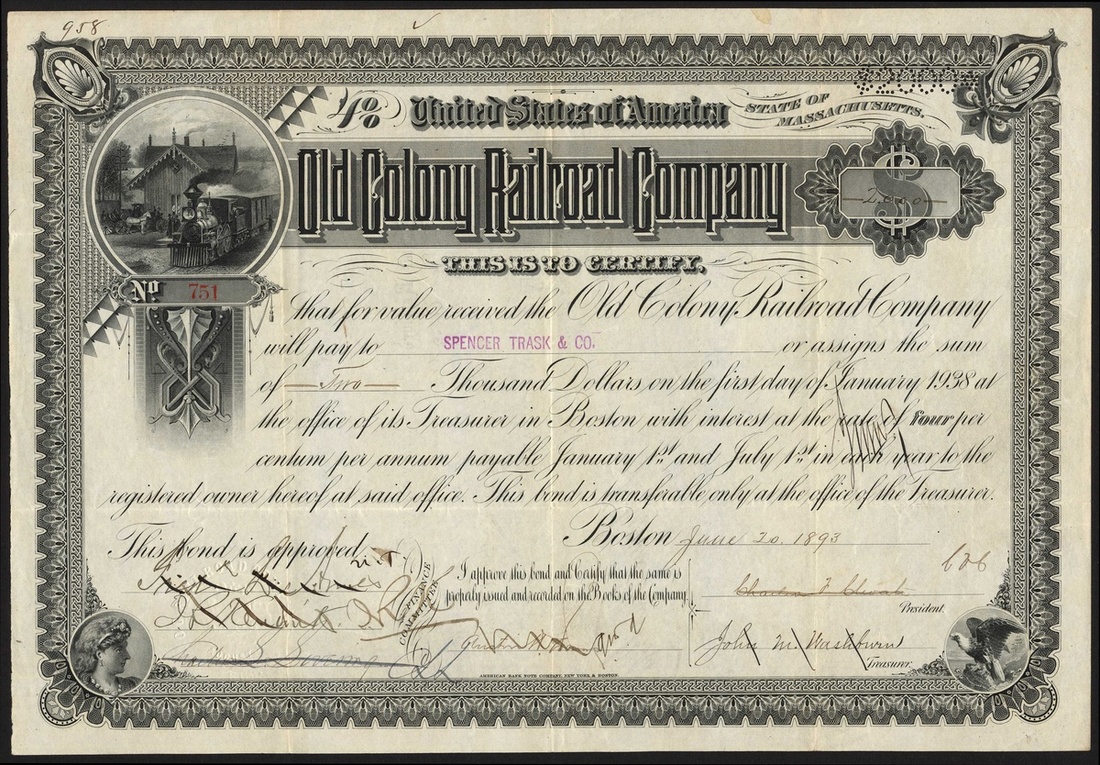 958
4% United States of America STATE OF MASSACHUSETTS.
Old Colony Railroad Company
$ 2,000
THIS IS TO CERTIFY,
No 751
that for value received the Old Colony Railroad Company
will pay to SPENCER TRASK & CO. or assigns the sum
of Two Thousand Dollars, on the first day of January 1938 at
the office of its Treasurer in Boston with interest at the rate of four per
centum per annum payable January 1st and July 1st in each year to the
registered owner hereof, at said office. This bond is transferable only at the office of the Treasurer.
Boston June 20, 1893
This bond is approved
FINANCE COMMITTEE
I approve this bond and Certify that the same is
properly issued and recorded on the Books of the Company.
President.
John M. Washburn
Treasurer.
AMERICAN BANK NOTE COMPANY, NEW YORK & BOSTON.